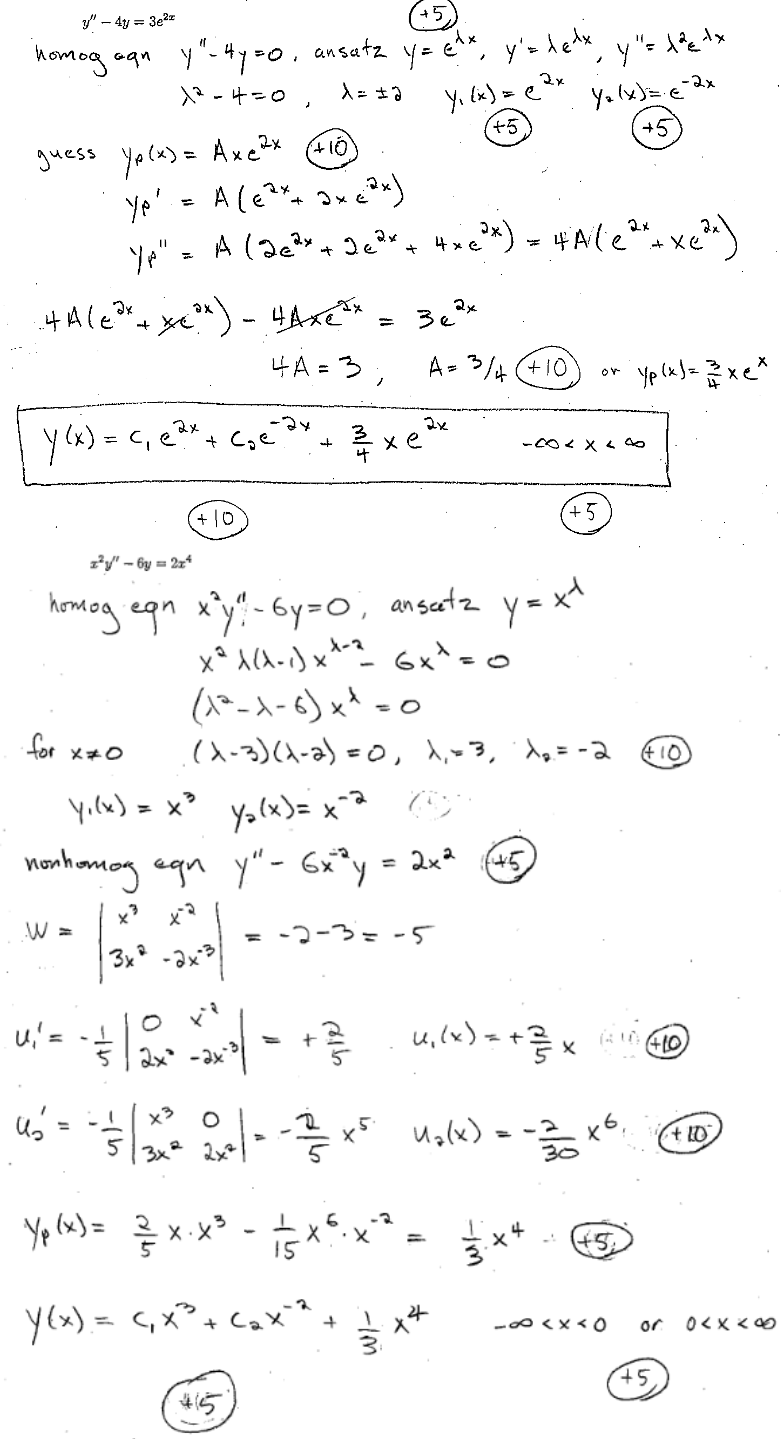 y'' − 4y = 3e^{2x}
(+5)
homog eqn y'' - 4y = 0, ansatz y = e^{λx}, y' = λe^{λx}, y'' = λ²e^{λx}
λ² - 4 = 0, λ = ±2 y₁(x) = e^{2x} y₂(x) = e^{-2x}
(+5) (+5)
guess yp(x) = Axe^{2x} (+10)
yp' = A(e^{2x} + 2xe^{2x})
yp'' = A(2e^{2x} + 2e^{2x} + 4xe^{2x}) = 4A(e^{2x} + xe^{2x})
4A(e^{2x} + xe^{2x}) - 4Axe^{2x} = 3e^{2x}
4A = 3, A = 3/4 (+10) or yp(x) = 3/4 xe^x
y(x) = c₁e^{2x} + c₂e^{-2x} + 3/4 xe^{2x} -∞ < x < ∞
(+10) (+5)
x²y'' − 6y = 2x⁴
homog eqn x²y'' - 6y = 0, ansatz y = x^λ
x² λ(λ-1)x^{λ-2} - 6x^λ = 0
(λ² - λ - 6)x^λ = 0
for x≠0 (λ-3)(λ-2) = 0, λ₁ = 3, λ₂ = -2 (+10)
y₁(x) = x³ y₂(x) = x^{-2}
nonhomog eqn y'' - 6x^{-2}y = 2x² (+5)
W = | x³ x^{-2} ; 3x² -2x^{-3} | = -2-3 = -5
u₁' = -1/5 | 0 x^{-2} ; 2x² -2x^{-3} | = +2/5 u₁(x) = +2/5 x (+10)
u₂' = -1/5 | x³ 0 ; 3x² 2x² | = -2/5 x⁵ u₂(x) = -2/30 x⁶ (+10)
yp(x) = 2/5 x·x³ - 1/15 x⁶·x^{-2} = 1/3 x⁴ (+5)
y(x) = c₁x³ + c₂x^{-2} + 1/3 x⁴ -∞<x<0 or 0<x<∞
(+5)